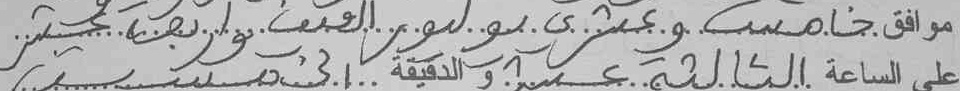 موافق خامس وعشرى يوليو الفين واربعة عشر
على الساعة الثالثة عشرة و الدقيقة الخمسين